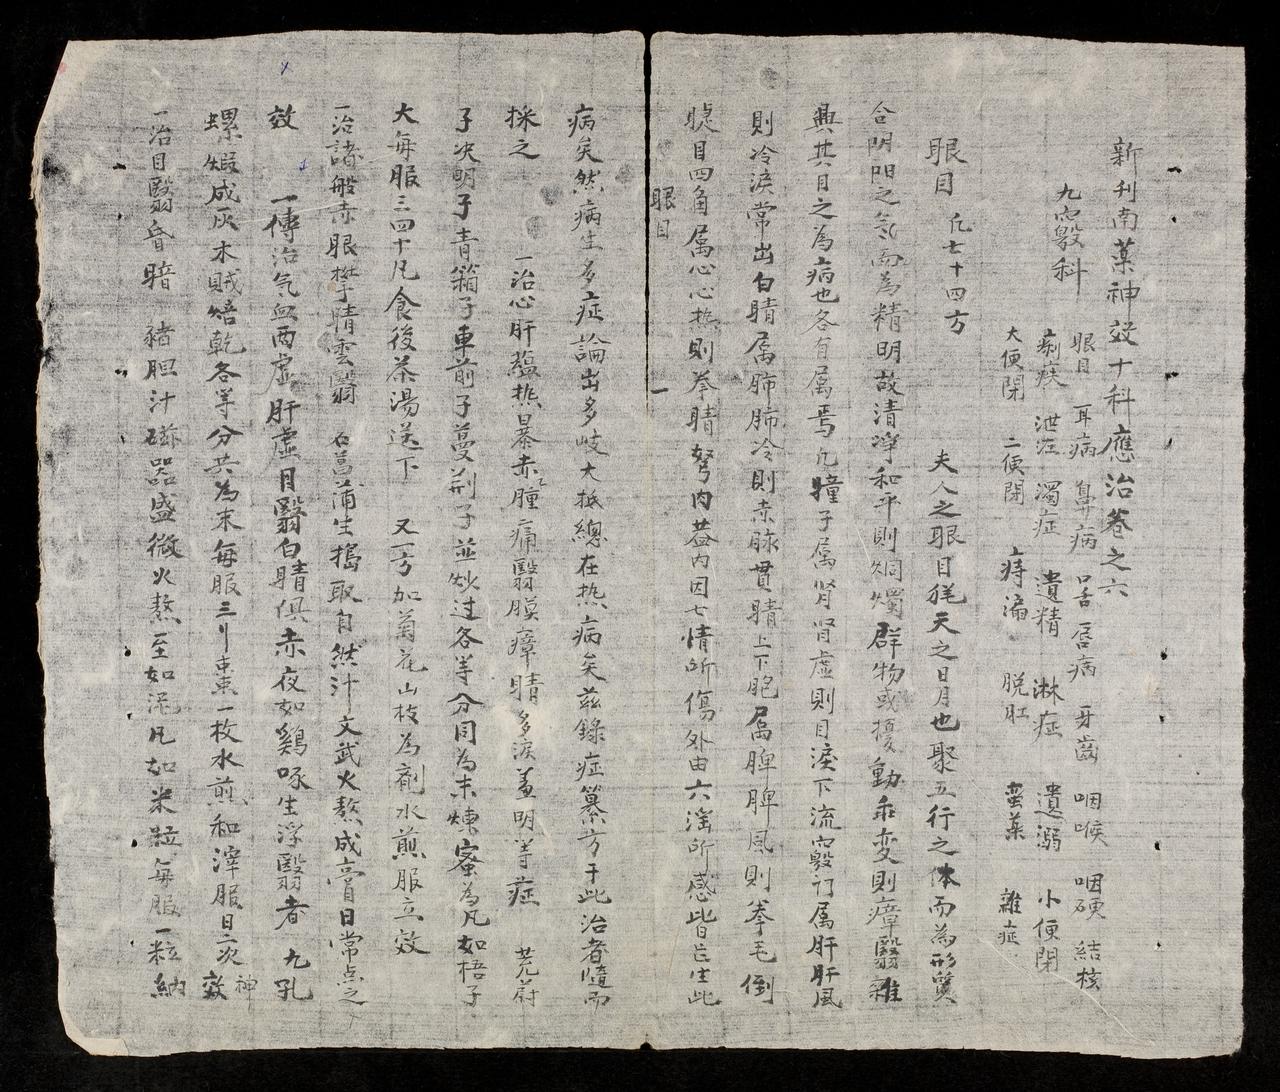 新刊南薬神效十科應治巻之六
九竅科
眼目 耳病 鼻病 口舌唇病 牙齒 咽喉 咽硬 結核
痢疾 泄泻 濁症 遺精 淋症 遺溺 小便閉
大便閉 二便閉 痔漏 脱肛 蛮薬 雜症
眼目 凡七十四方 夫人之眼目猶天之日月也聚五行之体而為形質
合阴阳之気而為精明故清淨和平則烱燭群物或擾動乖变則瘴翳雜
興其目之為病也各有属焉凡瞳子属肾肾虚則目淚下流竅訂属肝肝風
則冷淚常出白睛属肺肺冷則赤脉貫睛上下胞属脾脾風則拳毛倒
睫目四角属心心热則拳睛努肉盖内因七情所傷外由六滛所感皆亡生此
眼目 一
病矣然病生多症論出多岐大抵總在热病矣茲錄症纂方于此治者隨而
採之 一治心肝蕴热暴赤腫痛翳膜瘴睛多淚羞明等症 茺蔚
子决明子青箱子車前子蔓荆子並炒过各等分同為末煉蜜為凡如梧子
大每服三四十凡食後茶湯送下 又一方加菊花山枝為劑水煎服立效
一治諸般赤眼攀睛雲翳 石菖蒲生搗取自然汁文武火熬成膏日常点之
效 一傳治气血两虚肝虚目翳白睛俱赤夜如鷄啄生浮翳者 九孔
螺煅成灰木賊焙乾各等分共為末每服三刂東棗一枚水煎和滓服日二次 神效
一治目翳昏暗 豬胆汁磁器盛微火熬至如泥凡如米粒每服一粒納